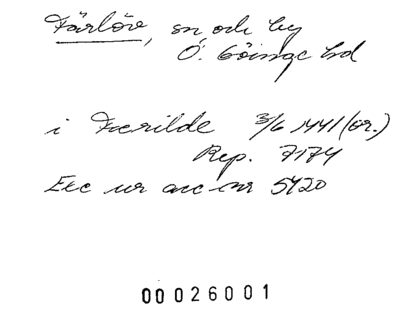 Färlöv, sn och by
Ö. Göinge hd
i Færilde 3/6 1441 (or.)
Rep. 7174
Exc ur acc nr 5420
00026001